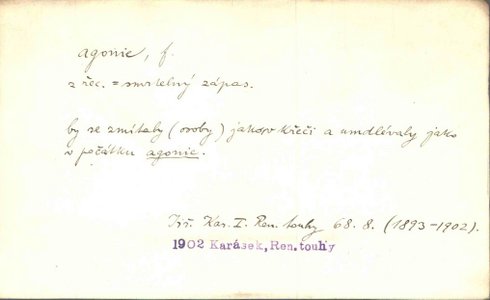 agonie, f.
z řec. = smrtelný zápas.
by se zmítaly (osoby) jako v křeči a umdlévaly jako
v počátku agonie.
Jiř. Kar. I. Ren. touhy 68. 8. (1893-1902).
1902 Karásek, Ren. touhy